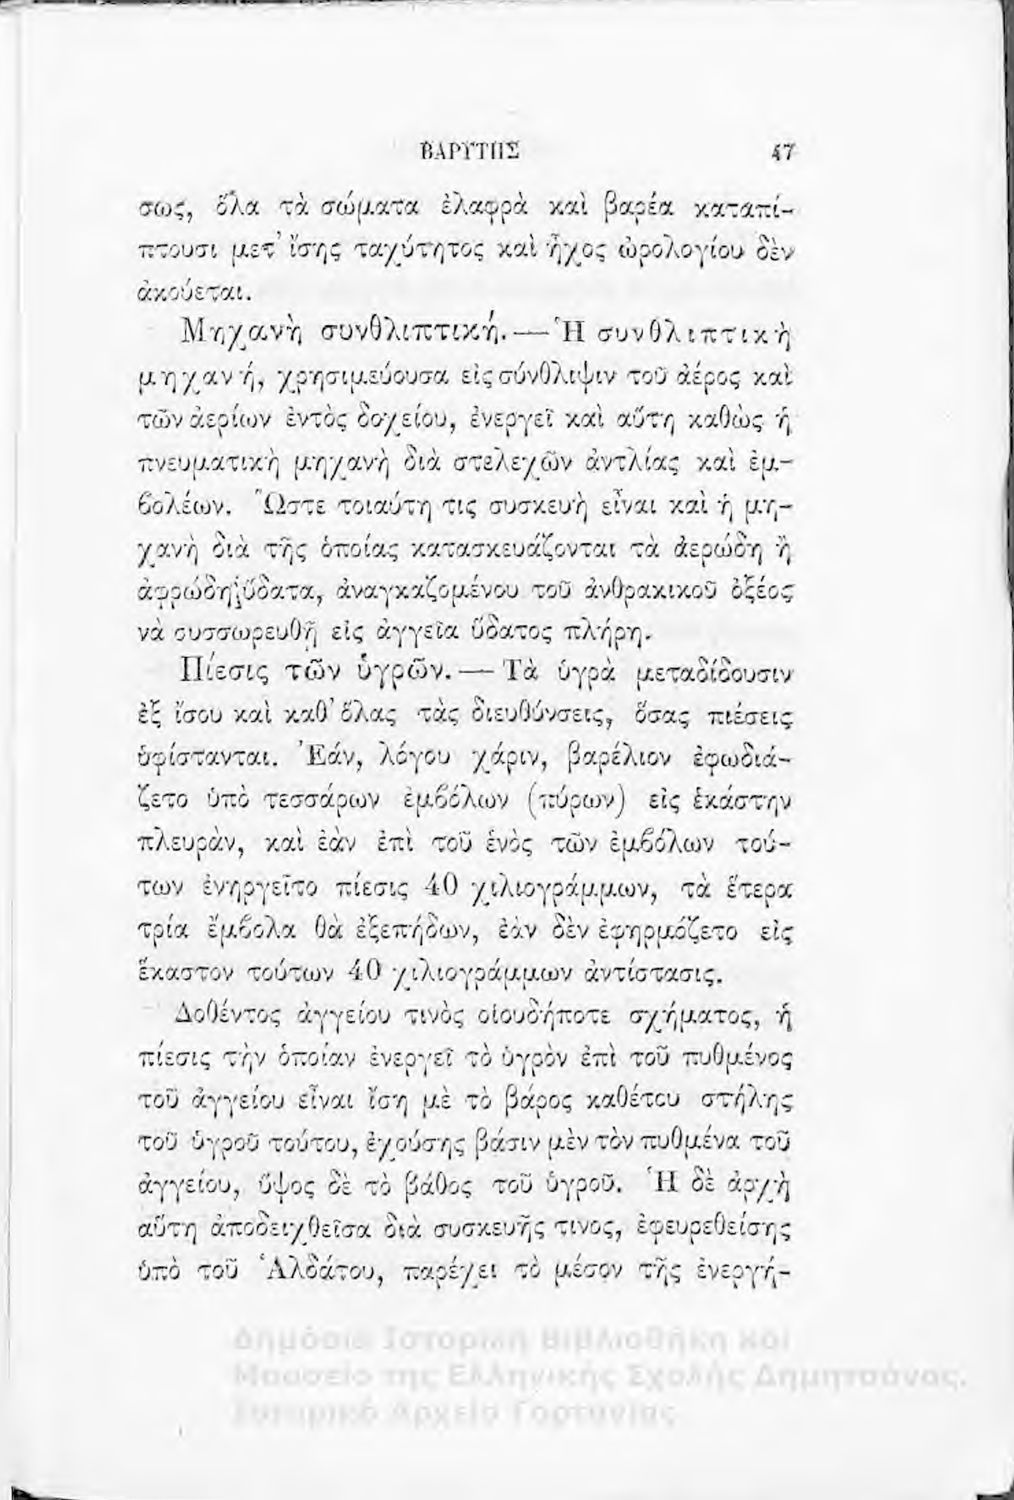 ΒΑΡΥΤΗΣ 47
σως, ὅλα τὰ σώματα ἐλαφρὰ καὶ βαρέα καταπί-
πτουσι μετ’ ἴσης ταχύτητος καὶ ἦχος ὡρολογίου δὲν
ἀκούεται.
Μηχανὴ συνθλιπτική. — Ἡ συνθλιπτικὴ
μηχανή, χρησιμεύουσα εἰς σύνθλιψιν τοῦ ἀέρος καὶ
τῶν ἀερίων ἐντὸς δοχείου, ἐνεργεῖ καὶ αὕτη καθὼς ἡ
πνευματικὴ μηχανὴ διὰ στελεχῶν ἀντλίας καὶ ἐμ-
βολέων. Ὥστε τοιαύτη τις συσκευὴ εἶναι καὶ ἡ μη-
χανὴ διὰ τῆς ὁποίας κατασκευάζονται τὰ ἀερώδη ἢ
ἀφρώδη ὕδατα, ἀναγκαζομένου τοῦ ἀνθρακικοῦ ὀξέος
νὰ συσσωρευθῇ εἰς ἀγγεῖα ὕδατος πλήρη.
Πίεσις τῶν ὑγρῶν. — Τὰ ὑγρὰ μεταδίδουσιν
ἐξ ἴσου καὶ καθ’ ὅλας τὰς διευθύνσεις, ὅσας πιέσεις
ὑφίστανται. Ἐάν, λόγου χάριν, βαρέλιον ἐφωδιά-
ζετο ὑπὸ τεσσάρων ἐμβόλων (πύρων) εἰς ἑκάστην
πλευράν, καὶ ἐὰν ἐπὶ τοῦ ἑνὸς τῶν ἐμβόλων τού-
των ἐνηργεῖτο πίεσις 40 χιλιογράμμων, τὰ ἕτερα
τρία ἔμβολα θὰ ἐξεπήδων, ἐὰν δὲν ἐφηρμόζετο εἰς
ἕκαστον τούτων 40 χιλιογράμμων ἀντίστασις.
Δοθέντος ἀγγείου τινὸς οἱουδήποτε σχήματος, ἡ
πίεσις τὴν ὁποίαν ἐνεργεῖ τὸ ὑγρὸν ἐπὶ τοῦ πυθμένος
τοῦ ἀγγείου εἶναι ἴση μὲ τὸ βάρος καθέτου στήλης
τοῦ ὑγροῦ τούτου, ἐχούσης βάσιν μὲν τὸν πυθμένα τοῦ
ἀγγείου, ὕψος δὲ τὸ βάθος τοῦ ὑγροῦ. Ἡ δὲ ἀρχὴ
αὕτη ἀποδειχθεῖσα διὰ συσκευῆς τινος, ἐφευρεθείσης
ὑπὸ τοῦ Ἁλδάτου, παρέχει τὸ μέσον τῆς ἐνεργή-
Δημόσια Ιστορική Βιβλιοθήκη και
Μουσείο της Ελληνικής Σχολής Δημητσάνας.
Ιστορικό Αρχείο Γορτυνίας